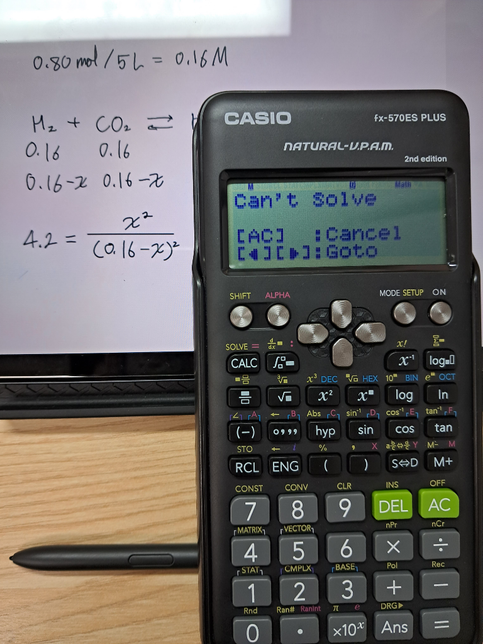 0.80 mol / 5 L = 0.16 M
H₂ + CO₂ ⇌ H
0.16 0.16
0.16-x 0.16-x
4.2 = x² / (0.16-x)²
CASIO fx-570ES PLUS
NATURAL-V.P.A.M.
2nd edition
M D Math
Can't Solve
[AC] :Cancel
[◀][▶]:Goto
SHIFT ALPHA MODE SETUP ON
SOLVE = d/dx : x! Σ
CALC ∫ x⁻¹ log
³√ x³ DEC ˣ√ HEX 10ˣ BIN eˣ OCT
√ x² xˣ log ln
∠ A ← B Abs C sin⁻¹ D cos⁻¹ E tan⁻¹ F
(-) °′″ hyp sin cos tan
STO ← i % , X M- M
RCL ENG ( ) S⇔D M+
CONST CONV CLR INS OFF
7 8 9 DEL AC
MATRIX VECTOR nPr nCr
4 5 6 × ÷
STAT CMPLX BASE Pol Rec
1 2 3 + −
Rnd Ran# RanInt π e DRG▶
0 . ×10ˣ Ans =